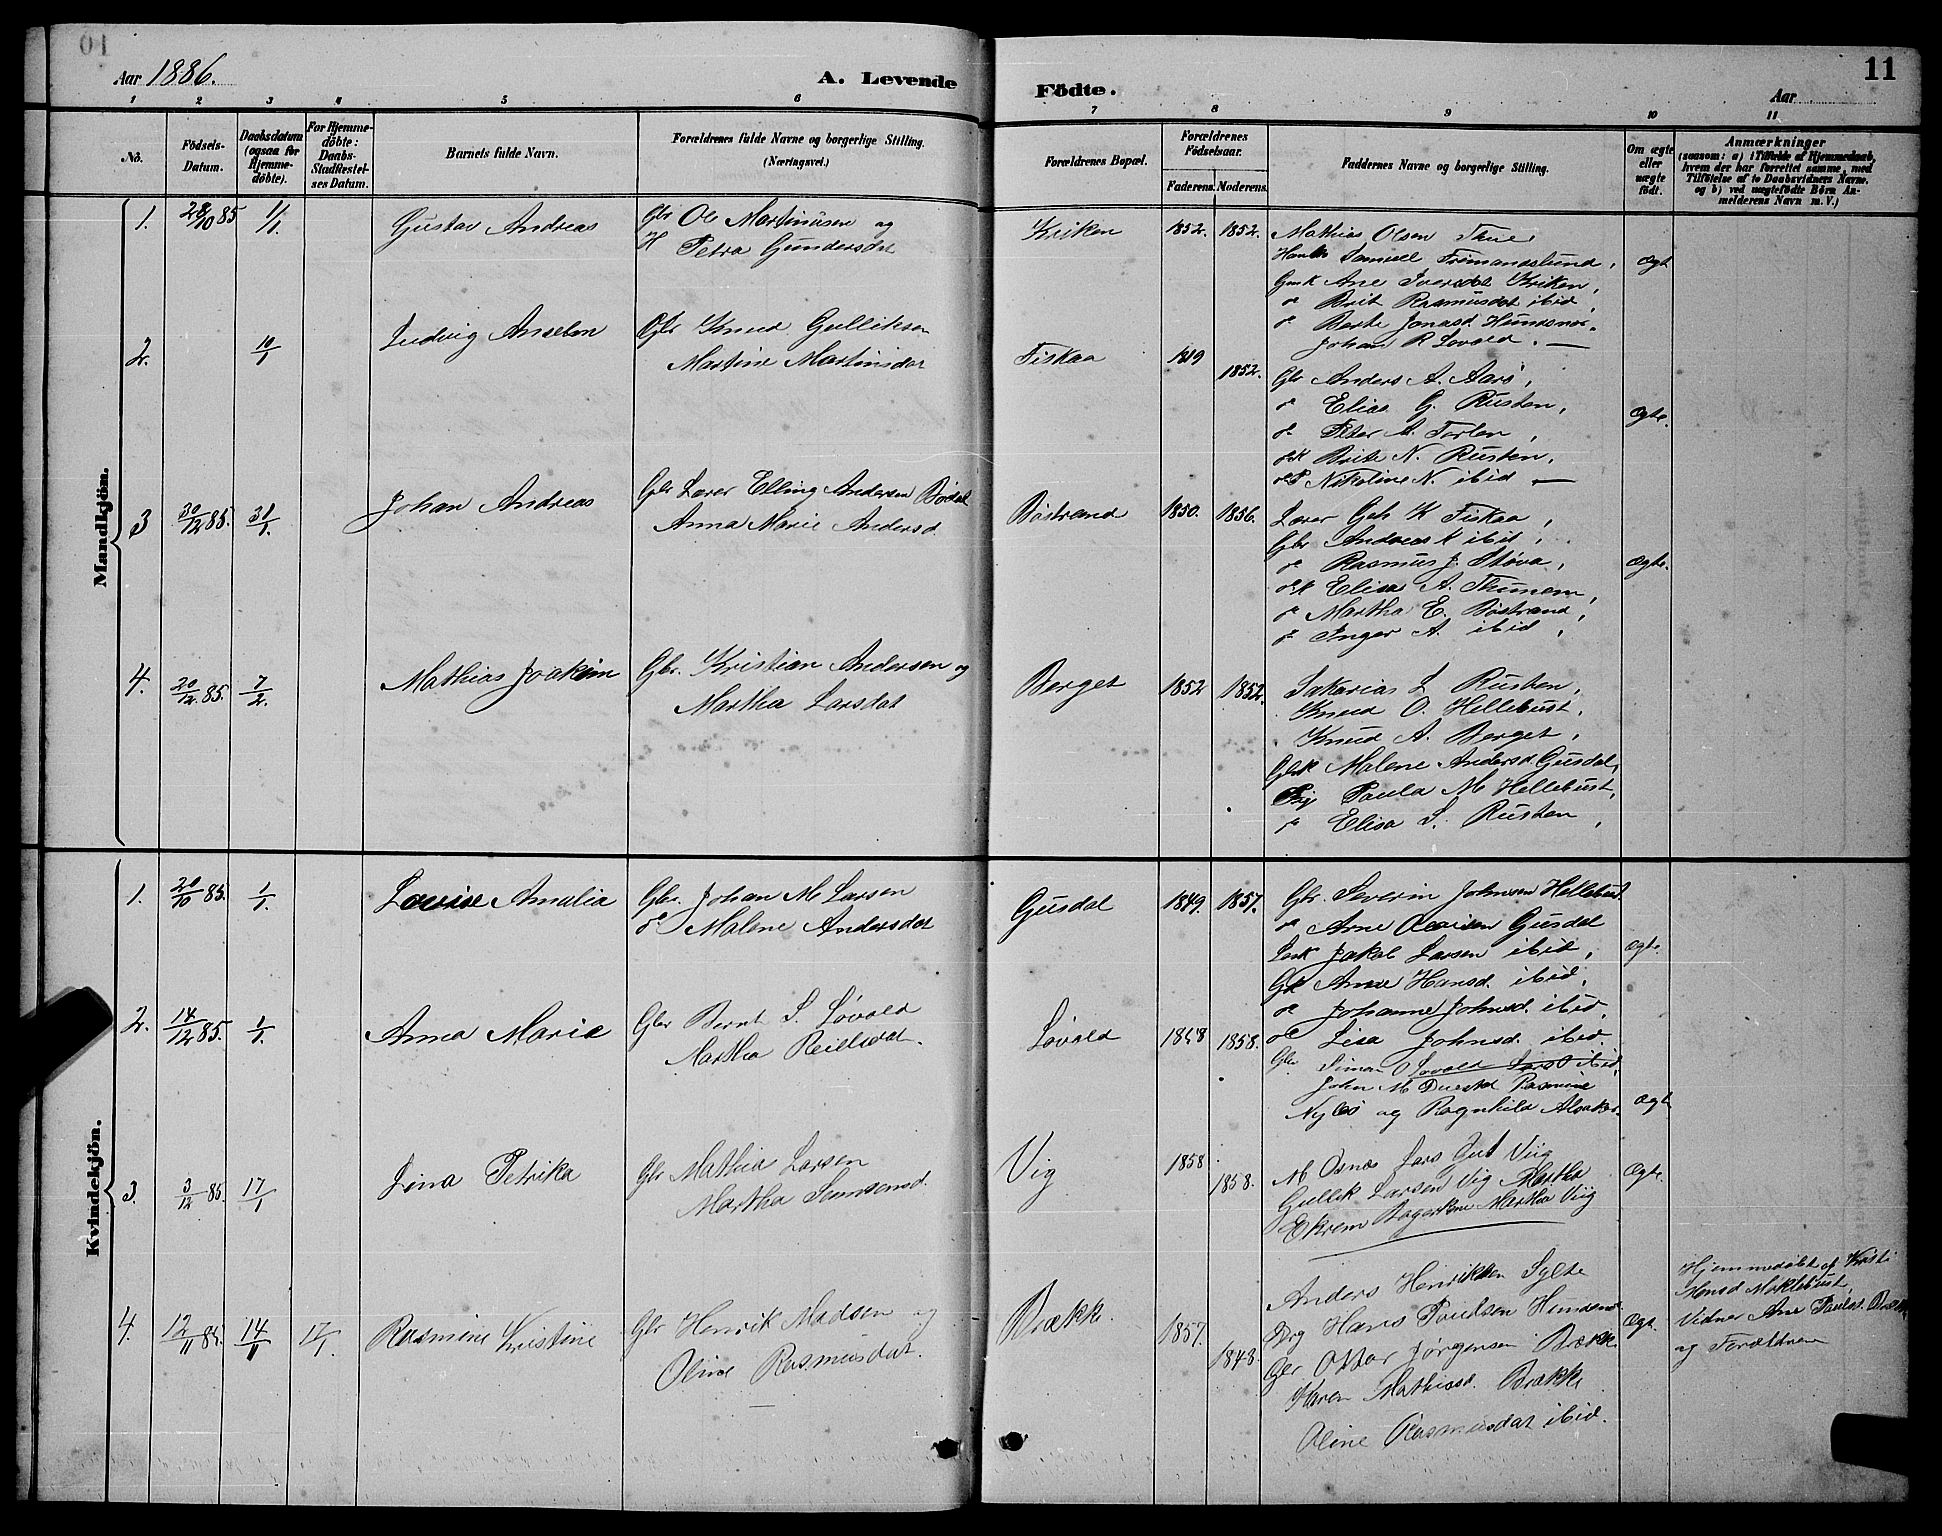 Aar 1886. A. Levende Födte. Aar 11
1 2 3 4 5 6 7 8 9 10 11
No. Födsels-Datum. Daabsdatum (ogsaa for Hjemme-döbte). For Hjemme-döbte: Daabs-Stadfæstel-ses Datum. Barnets fulde Navn. Forældrenes fulde Navne og borgerlige Stilling. (Næringsvei.) Forældrenes Bopæl. Forældrenes Födselsaar. Faderens. Moderens. Faddernes Navne og borgerlige Stilling. Om ægte eller uægte födt. Anmærkninger (saasom: a) i Tilfælde af Hjemmedaab, hvem der har forrettet samme, med Tilföielse af to Daabsvidners Navne, og b) ved uægtefödte Börn An-melderens Navn m. V.)
Mandkjön.
1. 28/10 85 1/1 Gustav Andreas Gbr Ole Martinusen og
H Petra Gundersdat
Kriken 1852. 1852. Mathias Olsen Tue
Samuel Frømandslund,
Ane Iversdat Kriken,
do Brit Rasmusdat ibid,
do Berte Jonasd Hundsnæs
Johan R Lovold. —
Ægt
2. 10/1 Ludvig Anselm Gbr Knud Gulliksen
Martine Martinsdat
Fiskaa 1819 1852. Gbr Anders A. Aarö,
do Elias G. Rusten,
do Peter A. Torlen,
Brite N. Rusten,
Nikoline N. ibid —
Ægte.
3 30/12 85. 31/1. Johan Andreas Gbr Lærer Elling Andersen
Anna Marie Andersd
Böstrand 1850. 1856. Lærer Geh K Fiskaa,
Gbr Andreas K ibid,
do Rasmus J. Støva,
do K Elisa A. Thunem,
do Martha E. Böstrand,
do Inger A. ibid,
Ægte.
4. 20/12 85. 7/2. Mathias Joakim Gbr. Kristian Andersen og
Martha Larsdat
Berget 1852 1852. Sakarias L Rusten,
Knud O. Hellebust,
Knud A. Berget,
Gbk Malene Andersd Gusdal,
Pig Paula M Hellebust,
do Elisa S. Rusten,
Kvindekjön.
1. 20/10 85. 1/1. Lovise Amalia Gbr. Johan M Larsen
do Malene Andersdat
Gusdal 1849. 1857. Gbr. Severin Johnsen Hellebust
do Arne Gusdal
Jakob Larsen ibid,
Anne Hansd. ibid,
do Johanne Johnsd. ibid.
do Lisa Johnsd. ibid.
Ægte.
2. 14/12 85. 1/1. Anna Marie Gbr Bernt S. Løvold
Martha
Løvold 1858. Gbr Simon Lovold Lars ibid,
John M Rasmine
Nybö og Ragnhild
Ægt
3. 3/12 85. 17/1 Lina Petrika Gbr Mathias Larsen
Martha
Vig 1858 1858. M Osnes Lars Viig
Gullik Larsen Vig Martha
Ekrem Martha Viig
Ægte.
4. 12/11 85. 14/11 17/1 Rasmine Kristine Gbr Henrik Madsen og
Oline Rasmusdat.
Brække 1857. 1848. Anders Henriksen Sylte
Hans Paulsen
Gbr Ottar Jørgensen Brække
Karen Mathiasd. Brække
Oline Rasmusdat ibid.
Ægt. Hjemmedöbt af
Hansd Meklebust
Vidner Ane
og Forældrene